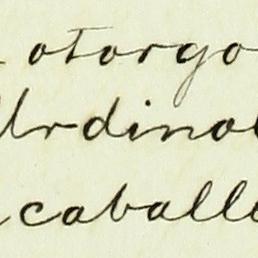 otorgo
Urdinol
caballe